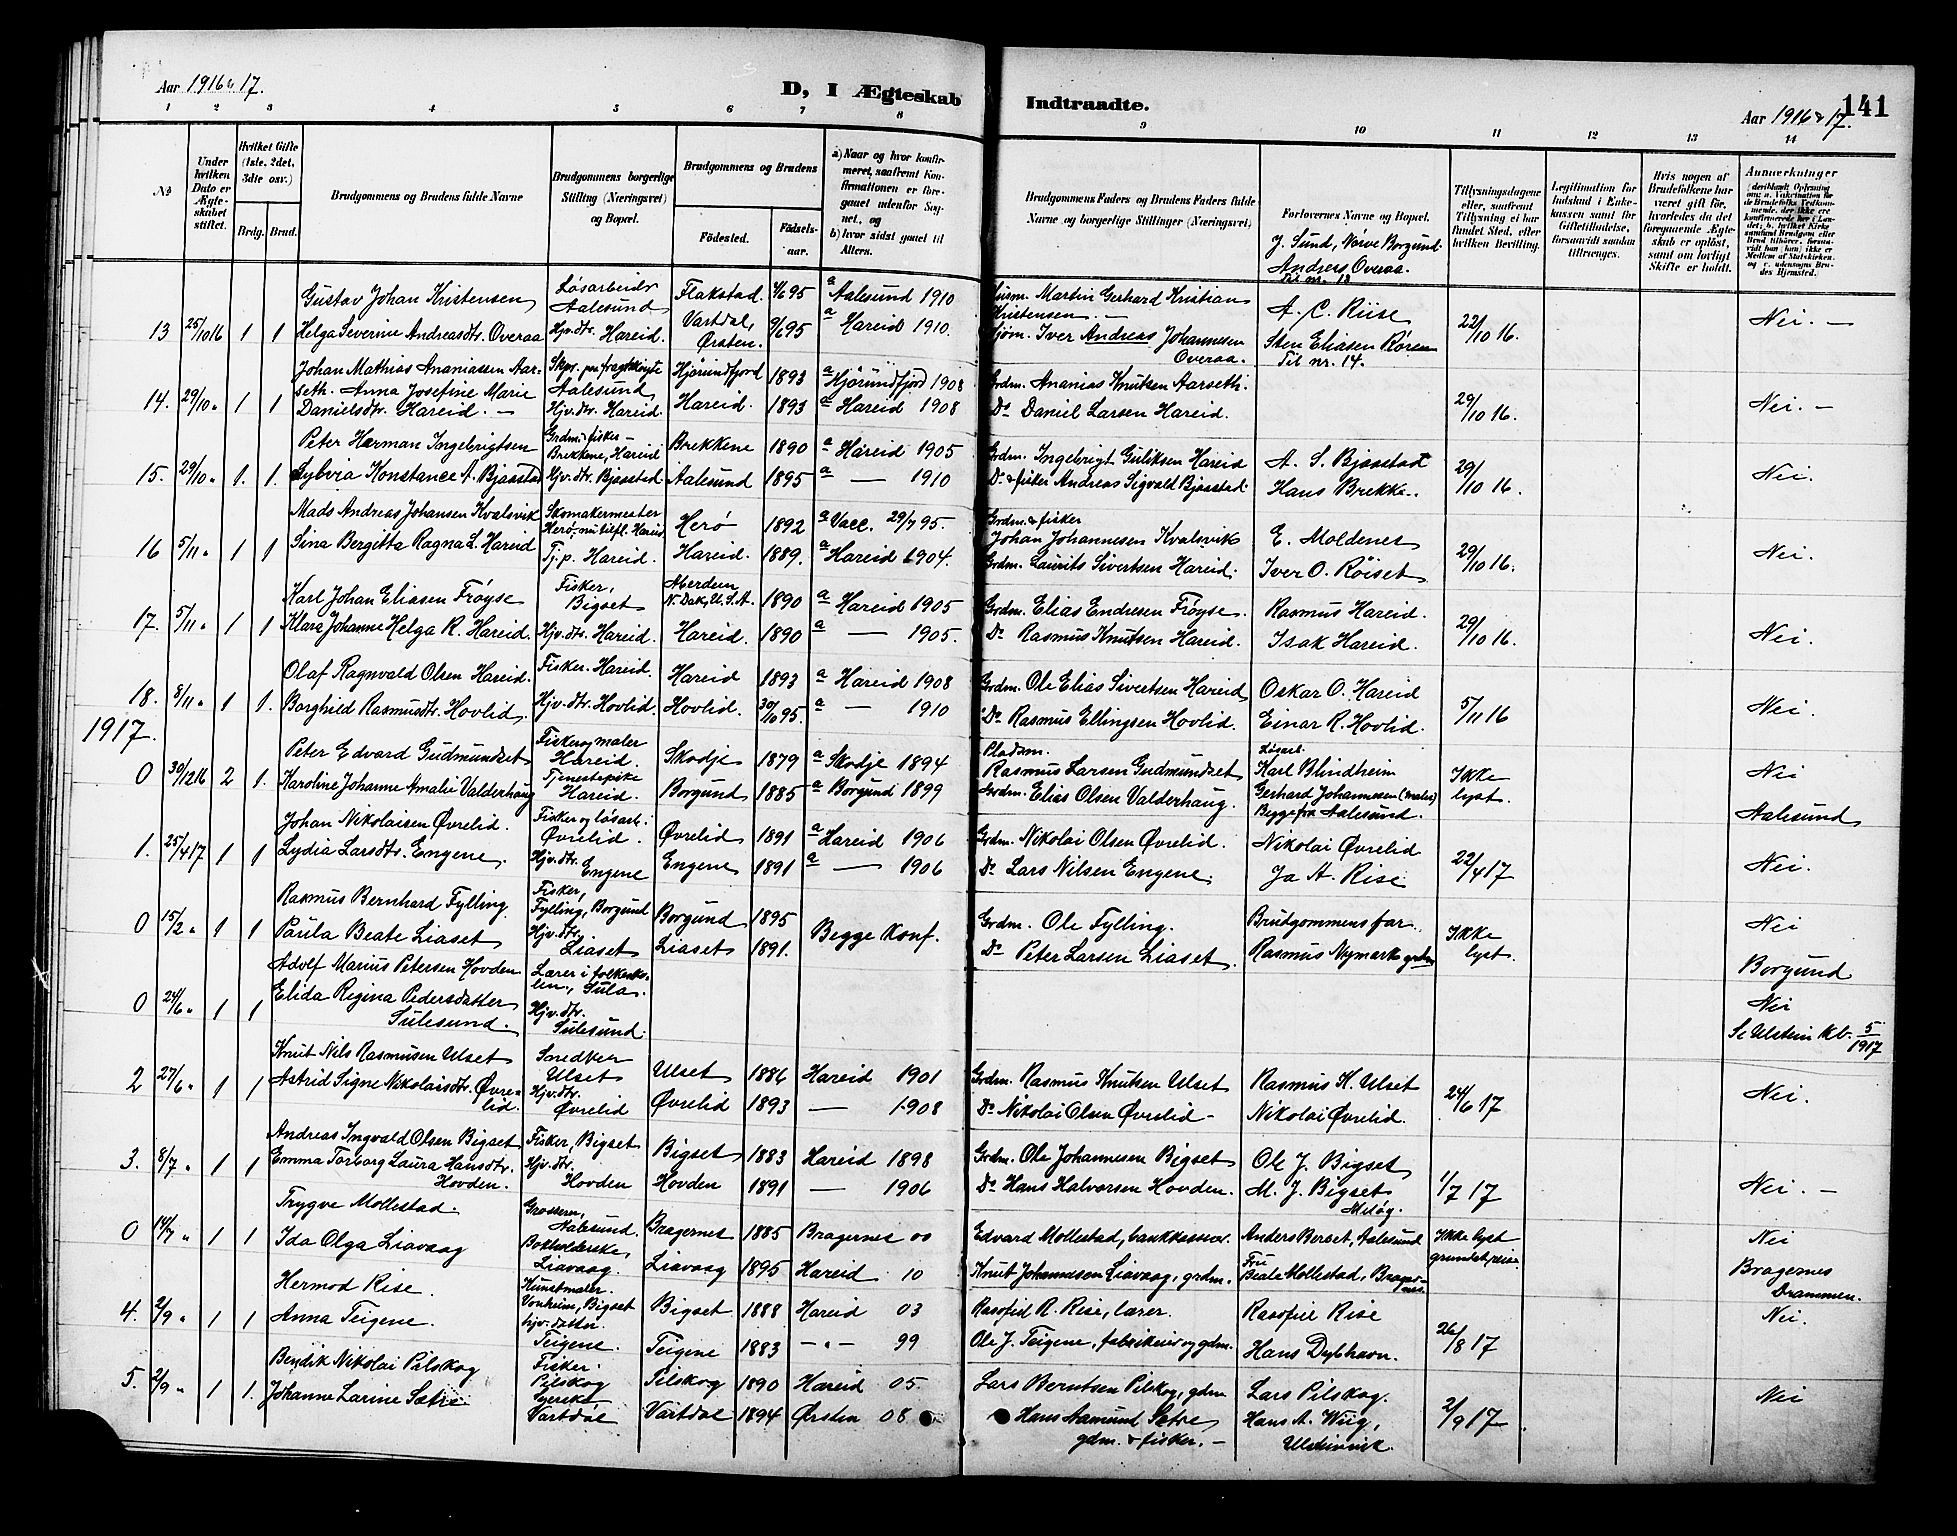 Aar 1916 & 17.
D, I Ægteskab
Indtraadte.
Aar 1916 & 17.
141
1 2 3 4 5 6 7 8 9 10 11 12 13 14
No
Under hvilken Dato er Ægteskabet stiftet.
Hvilket Gifte (1ste, 2det, 3die osv.)
Brdg. Brud.
Brudgommens og Brudens fulde Navne
Brudgommens borgerlige Stilling (Næringsvei) og Bopæl.
Brudgommens og Brudens
Fødested.
Fødselsaar.
a) Naar og hvor konfirmeret, saafremt Konfirmationen er foregaaet udenfor Sognet, og
b) hvor sidst gaaet til Alters.
Brudgommens Faders og Brudens Faders fulde Navne og borgerlige Stillinger (Næringsvei)
Forlovernes Navne og Bopæl.
J. Sund, Nørve Borgund
Anders Overaa.
Til nr. 13
Tillysningsdagene eller, saafremt Tillysning ei har fundet Sted, efter hvilken Bevilling.
Legitimation for Indskud i Enkekassen samt for Giftetilladelse, forsaavidt saadan tiltrænges.
Hvis nogen af Brudefolkene har været gift før, hvorledes da det foregaaende Ægteskab er opløst, samt om lovligt Skifte er holdt.
Anmærkninger
Gustav Johan Kristensen Løsarbeider Aalesund Flakstad. 4/6 95 a Aalesund 1910 Husm. Martin Gerhard Kristian Kristensen. — A. C. Riise
13 25/10 16 1 1 Helga Severine Andreasdtr. Overaa Hjv.dtr. Hareid. Vartdal, Ørsten. 9/6 95 a Hareid 1910. Gjørm. Iver Andreas Johannesen Overaa. Sten Eliasen Røren Til nr. 14. 22/10 16. Nei. —
Johan Mathias Ananiassen Aarseth. Skpr. paa fragtskøyte Aalesund Hjørundfjord 1893 a Hjørundfjord 1908 Grdm. Ananias Knutsen Aarseth.
14. 29/10 " 1 1 Anna Josefine Marie Danielsdtr. Hareid. — Hjv.dtr. Hareid. Hareid. 1893 a Hareid 1908 Do Daniel Larsen Hareid. 29/10 16. Nei. —
Peter Herman Ingebrigtsen Grdm. & fisker — Brekkene, Hareid Brekkene 1890 a Hareid 1905 Grdm. Ingebrigt Guliksen Hareid A. S. Bjaastad
15. 29/10 " 1. 1. Sylvia Konstance A. Bjaastad Hjv.dtr. Bjaastad. Aalesund 1895 a — 1910 Do & fisker Andreas Sigvald Bjaastad. Hans Brekke. 29/10 16. Nei.
Mads Andreas Johansen Kvalsvik Skomakermester Herø, nu tilfl. Hareid Herø 1892 a Vacc. 29/7 95. Grdm. & fisker Johan Johannesen Kvalsvik E. Moldenes
16 5/11 " 1 1 Sina Bergitta Ragna L. Hareid Tj.p. Hareid. Hareid. 1889. a Hareid 1904. Grdm. Laurits Sivertsen Hareid. Iver O. Røiset 29/10 16. Nei.
Karl Johan Eliasen Frøyse Fisker, Bigset Aberdeen N. Dak, U.S.A. 1890 a Hareid 1905 Grdm. Elias Endresen Frøyse. Rasmus Hareid.
17. 5/11 " 1 1 Klara Johanne Helga R. Hareid. Hjv.dtr. Hareid. Hareid. 1890 a — 1905. Do Rasmus Knutsen Hareid. Isak Hareid. 29/10 16. Nei.
Olaf Ragnvald Olsen Hareid. Fisker. Hareid. Hareid 1893 a Hareid 1908 Grdm. Ole Elias Sivertsen Hareid Oskar O. Hareid
18. 8/11 " 1 1. Borghild Rasmusdtr. Hovlid. Hjv.dtr. Hovlid. Hovlid. 30/10 95. a — 1910 Do Rasmus Ellingsen Hovlid. Einar R. Hovlid. 5/11 16 Nei.
1917.
Peter Edvard Gudmundset Fisker og maler Hareid. Skodje 1879 a Skodje 1894 Pladsm. Rasmus Larsen Gudmundset Løsarb. Karl Blindheim
0 30/12 16 2 1. Karoline Johanne Amalie Valderhaug Tjenestepike Hareid. Borgund 1885 a Borgund 1899 Grdm. Elias Olsen Valderhaug. Gerhard Johannessen (maler) Begge fra Aalesund. Ikke lyst. Nei Aalesund
Johan Nikolaisen Øvrelid. Fisker og løsarb. Øvrelid Øvrelid 1891 a Hareid 1906 Grdm. Nikolai Olsen Øvrelid. Nikolai Øvrelid
1. 25/4 17 1 1 Lydia Larsdtr. Engene. Hjv.dtr. Engene Engene 1891 a — 1906 Do Lars Nilsen Engene. Ja A. Rise 22/4 17 Nei.
Rasmus Bernhard Fylling. Fisker, Fylling, Borgund Borgund 1895 Grdm. Ole Fylling. Brudgommens far.
0 15/2 " 1 1 Paula Beate Liaset Hjv.dtr. Liaset Liaset 1891. Begge konf. Do Peter Larsen Liaset. Rasmus Nymark grdm Ikke lyst. Nei Borgund
Adolf Marius Petersen Hovden Lærer i folkeskolen, Sula.
0 24/6 " 1 1 Elida Regina Pedersdatter Sulesund. Hjv.dtr. Sulesund. Nei Se Ulstein kb. 5/1917
Knut Nils Rasmusen Ulset Snedker Ulset Ulset 1886 Hareid 1901 Grdm. Rasmus Knutsen Ulset Rasmus K. Ulset
2 27/6 " 1 1 Astrid Signe Nikolaisdtr. Øvrelid. Hjv.dtr. Øvrelid Øvrelid 1893 — 1908 Do Nikolai Olsen Øvrelid — Nikolai Øvrelid. 24/6 17 Nei.
Andreas Ingvald Olsen Bigset Fisker, Bigset Bigset 1883 Hareid 1898 Grdm. Ole Johannesen Bigset Ole J. Bigset
3. 8/7 " 1 1 Emma Torborg Laura Hansdtr. Hovden. Hjv.dtr. Hovden Hovden 1891 — 1906 Do Hans Halvorsen Hovden. M. J. Bigset 1/7 17 Nei. —
Trygve Mollestad. Grosserer, Aalesund. Bragernes 1885 Bragernes 00 Edvard Mollestad, bankkasserer. Anders Berset, Aalesund
0 14/7 " 1 1 Ida Olga Liavaag Bokholderske, Liavaag. Liavaag 1895 Hareid 10 Knut Johannesen Liavaag, grdm. Fru Beate Mollestad, Bragernes. Ikke lyst grundet reise. Nei Bragernes Drammen.
Hermod Rise. Kunstmaler. Vonheim, Bigset Bigset 1888 Hareid 03 Rasofiel R. Rise, lærer. Rasofiel Rise
4. 2/9 " 1 1 Anna Teigene. hjv. datter. Teigene. Teigene 1883 — " — 99 Ole J. Teigene, fabrikeier og gdm. Hans Dybhavn. 26/8 17 Nei.
Bendik Nikolai Pilskog Fisker. Pilskog Pilskog 1890 Hareid 05. Lars Berntsen Pilskog, gdm Lars Pilskog.
5. 2/9 " 1 1. Johanne Larine Sætre Vartdal Vartdal 1894 Ørsten 08 Hans Aamund Sætre gdm. & fisker. — Hans A. Wiig, Ulsteinvik. 2/9 17. Nei